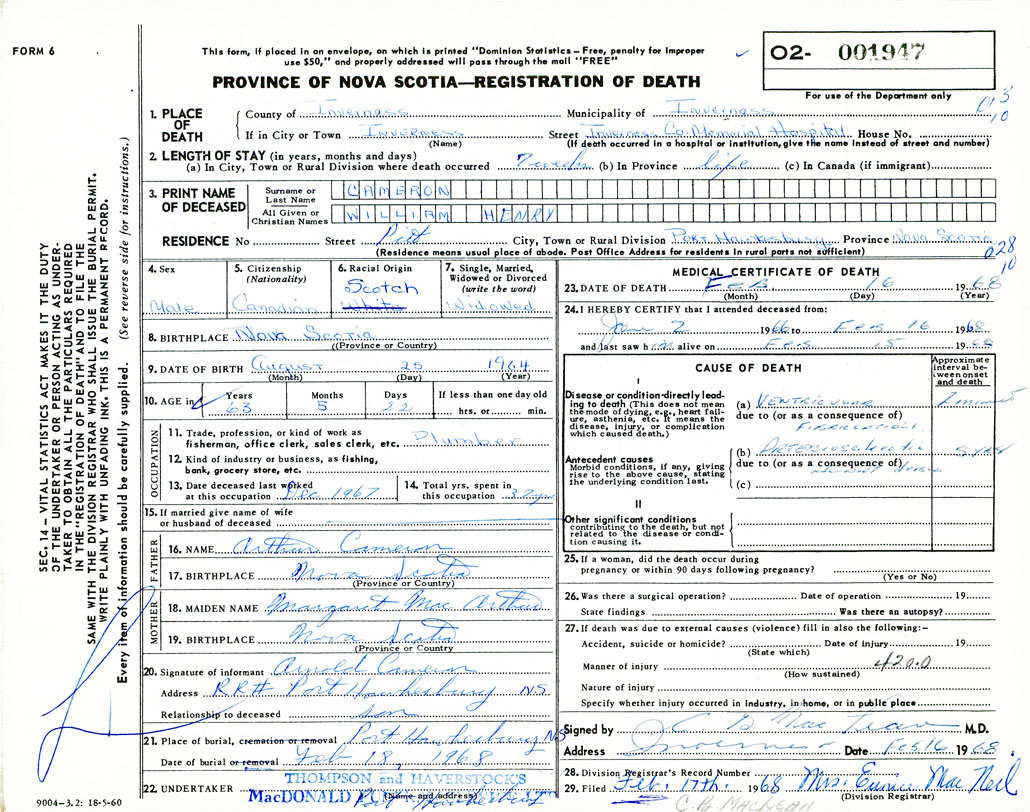 FORM 6
This form, if placed in an envelope, on which is printed "Dominion Statistics – Free, penalty for improper
use $50," and properly addressed will pass through the mail "FREE"
O2- 001947
PROVINCE OF NOVA SCOTIA—REGISTRATION OF DEATH
For use of the Department only
1. PLACE OF DEATH
County of Inverness Municipality of Inverness
If in City or Town Inverness Street Inverness Co. Memorial Hospital House No.
(Name) (If death occurred in a hospital or institution, give the name instead of street and number)
2. LENGTH OF STAY (in years, months and days)
(a) In City, Town or Rural Division where death occurred 7 weeks (b) In Province life (c) In Canada (if immigrant)
3. PRINT NAME OF DECEASED
Surname or Last Name CAMERON
All Given or Christian Names WILLIAM HENRY
RESIDENCE No Street City, Town or Rural Division Port Hawkesbury Province Nova Scotia
(Residence means usual place of abode. Post Office Address for residents in rural parts not sufficient)
028
10
4. Sex
Male
5. Citizenship
(Nationality)
Canadian
6. Racial Origin
Scotch
White
7. Single, Married,
Widowed or Divorced
(write the word)
Widowed
8. BIRTHPLACE Nova Scotia
(Province or Country)
9. DATE OF BIRTH August 25 1904
(Month) (Day) (Year)
10. AGE in
Years Months Days If less than one day old
63 5 22 hrs. or min.
OCCUPATION
11. Trade, profession, or kind of work as
fisherman, office clerk, sales clerk, etc. Plumber
12. Kind of industry or business, as fishing,
bank, grocery store, etc.
13. Date deceased last worked
at this occupation Dec 1967
14. Total yrs. spent in
this occupation 37 yrs
15. If married give name of wife
or husband of deceased
FATHER
16. NAME Arthur Cameron
17. BIRTHPLACE Nova Scotia
(Province or Country)
MOTHER
18. MAIDEN NAME Margaret Mac Arthur
19. BIRTHPLACE Nova Scotia
(Province or Country
20. Signature of informant Arnold Cameron
Address RR# Port Hawkesbury N.S
Relationship to deceased son
21. Place of burial, cremation or removal Port Hawkesbury NS
Date of burial or removal Feb 18, 1968
22. UNDERTAKER THOMPSON and HAVERSTOCK'S
(Name and address)
9004-3.2: 18-5-60
SEC. 14 – VITAL STATISTICS ACT MAKES IT THE DUTY
OF THE UNDERTAKER OR PERSON ACTING AS UNDER-
TAKER TO OBTAIN ALL THE PARTICULARS REQUIRED
IN THE "REGISTRATION OF DEATH" AND TO FILE THE
SAME WITH THE DIVISION REGISTRAR WHO SHALL ISSUE THE BURIAL PERMIT.
WRITE PLAINLY WITH UNFADING INK. THIS IS A PERMANENT RECORD.
Every item of information should be carefully supplied. (See reverse side for instructions.)
MEDICAL CERTIFICATE OF DEATH
23. DATE OF DEATH Feb. 16 1968
(Month) (Day) (Year)
24. I HEREBY CERTIFY that I attended deceased from:
Jan 2 1966 to Feb 16 1968
and last saw him alive on Feb 15 1968
CAUSE OF DEATH
Approximate
interval be-
tween onset
and death
I
Disease or condition directly lead-
ing to death (This does not mean
the mode of dying, e.g., heart fail-
ure, asthenia, etc. It means the
disease, injury, or complication
which caused death.)
(a) Ventricular
due to (or as a consequence of)
Fibrillation
Antecedent causes
Morbid conditions, if any, giving
rise to the above cause, stating
the underlying condition last.
(b) Arteriosclerotic
due to (or as a consequence of)
(c)
II
Other significant conditions
contributing to the death, but not
related to the disease or condi-
tion causing it.
25. If a woman, did the death occur during
pregnancy or within 90 days following pregnancy?
(Yes or No)
26. Was there a surgical operation? Date of operation 19
State findings Was there an autopsy?
27. If death was due to external causes (violence) fill in also the following:–
Accident, suicide or homicide? Date of injury 19
(State which)
Manner of injury 420.0
(How sustained)
Nature of injury
Specify whether injury occurred in industry, in home, or in public place
Signed by J C B Mac Lean M.D.
Address Inverness Date Feb 16 1968.
28. Division Registrar's Record Number
29. Filed Feb. 17th. 1968 Mrs. Eunice Mac Neil
(Division Registrar)
C.B. MACLEAN